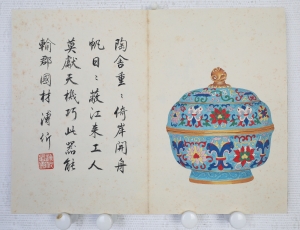 陶舍重〻倚岸開舟
帆日〻蔽江来工人
莫獻天機巧此器能
輸郡國材 溥忻